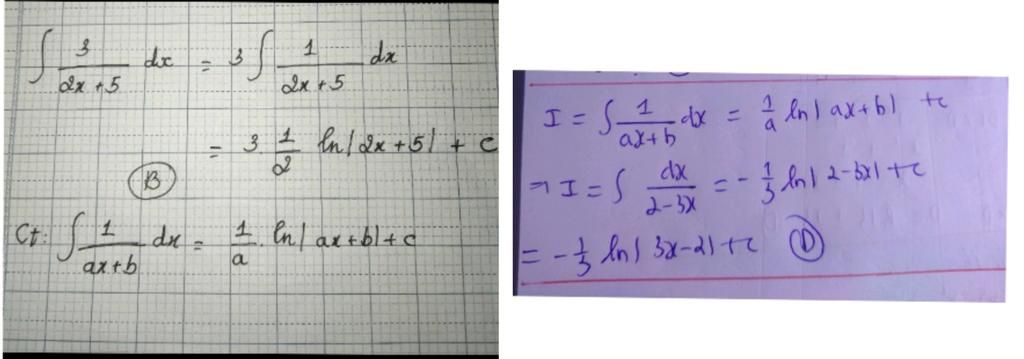 ∫ 3/(2x+5) dx = 3 ∫ 1/(2x+5) dx
= 3. 1/2 ln|2x+5| + C
B
Ct: ∫ 1/(ax+b) dx = 1/a . ln|ax+b| + C
I = ∫ 1/(ax+b) dx = 1/a ln|ax+b| + C
→ I = ∫ dx/(2-3x) = -1/3 ln|2-3x| + C
= -1/3 ln|3x-2| + C D